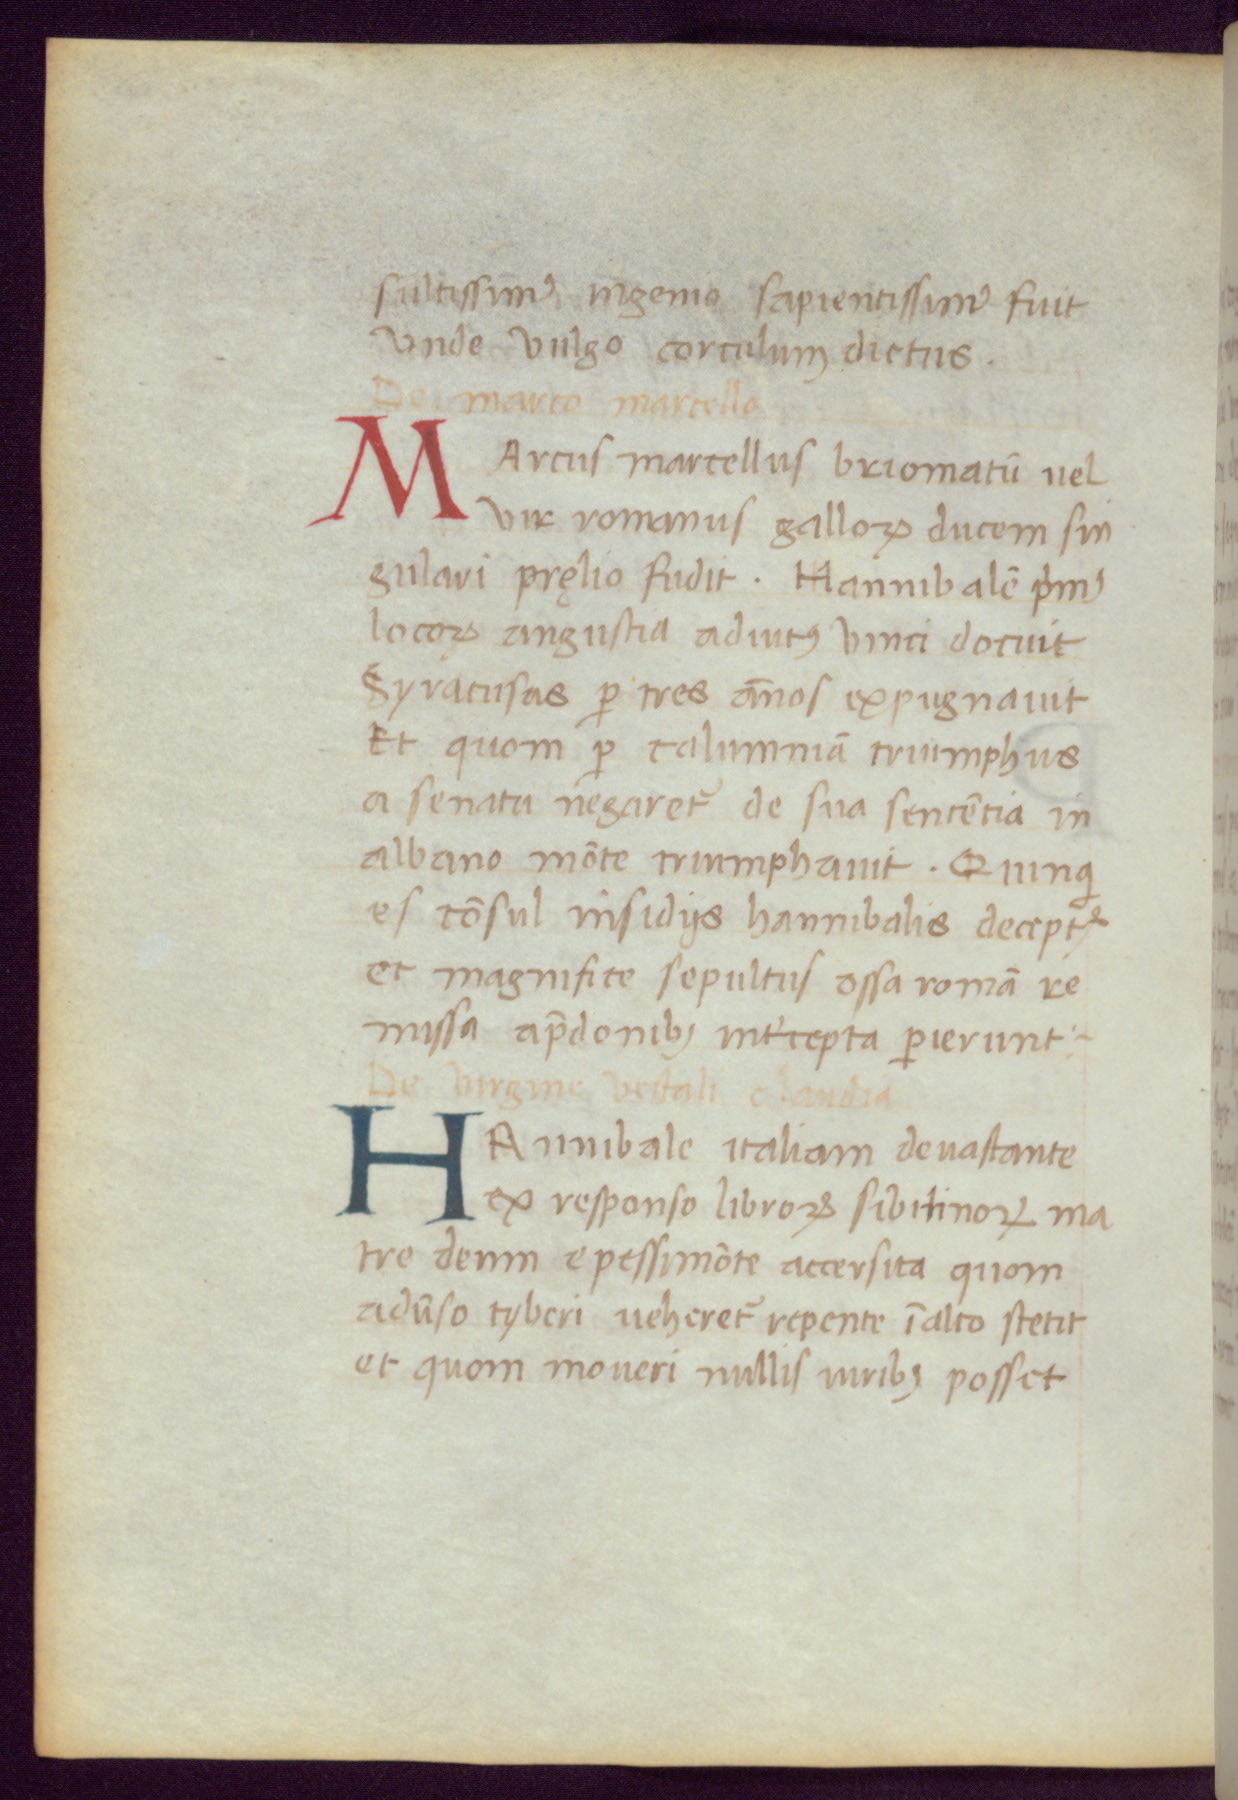 sultissim9 ingenio sapientissim9 fuit
Vnde vulgo corculum dictus.
De marco marcello
MArcus marcellus briomatū uel
vir romanus galloꝝ ducem sin
gulari pręlio fudit. Hannibalē prim9
locoꝝ angustia adiut9 vinci docuit
Syracusas ꝑ tres ānos expugnauit
Et quom ꝑ calumniā triumphus
a senatu negaret̄ de sua sentētia in
albano mōte triumphauit. Quinqi
es cōsul insidijs hannibalis decept9
et magnifice sepultus ossa romā re
missa ap̄donibꝫ int'cepta ꝑierunt
De virgine vestali claudia
HAnnibale italiam deuastante
ex responso libroꝝ sibillinoꝝ ma
tre deum e pessimōte accersita quom
adūso tyberi ueheret̄ repente ī alto stetit
et quom moueri nullis uiribꝫ posset